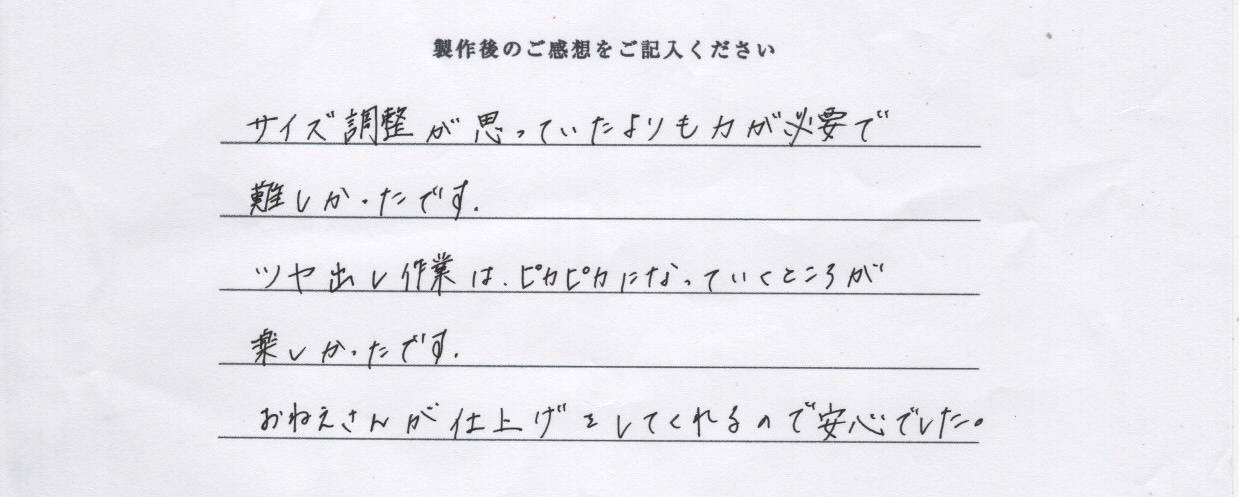 製作後のご感想をご記入ください
サイズ調整が思っていたよりも力が必要で
難しかったです.
ツヤ出し作業は、ピカピカになっていくところが
楽しかったです.
おねえさんが仕上げをしてくれるので安心でした。